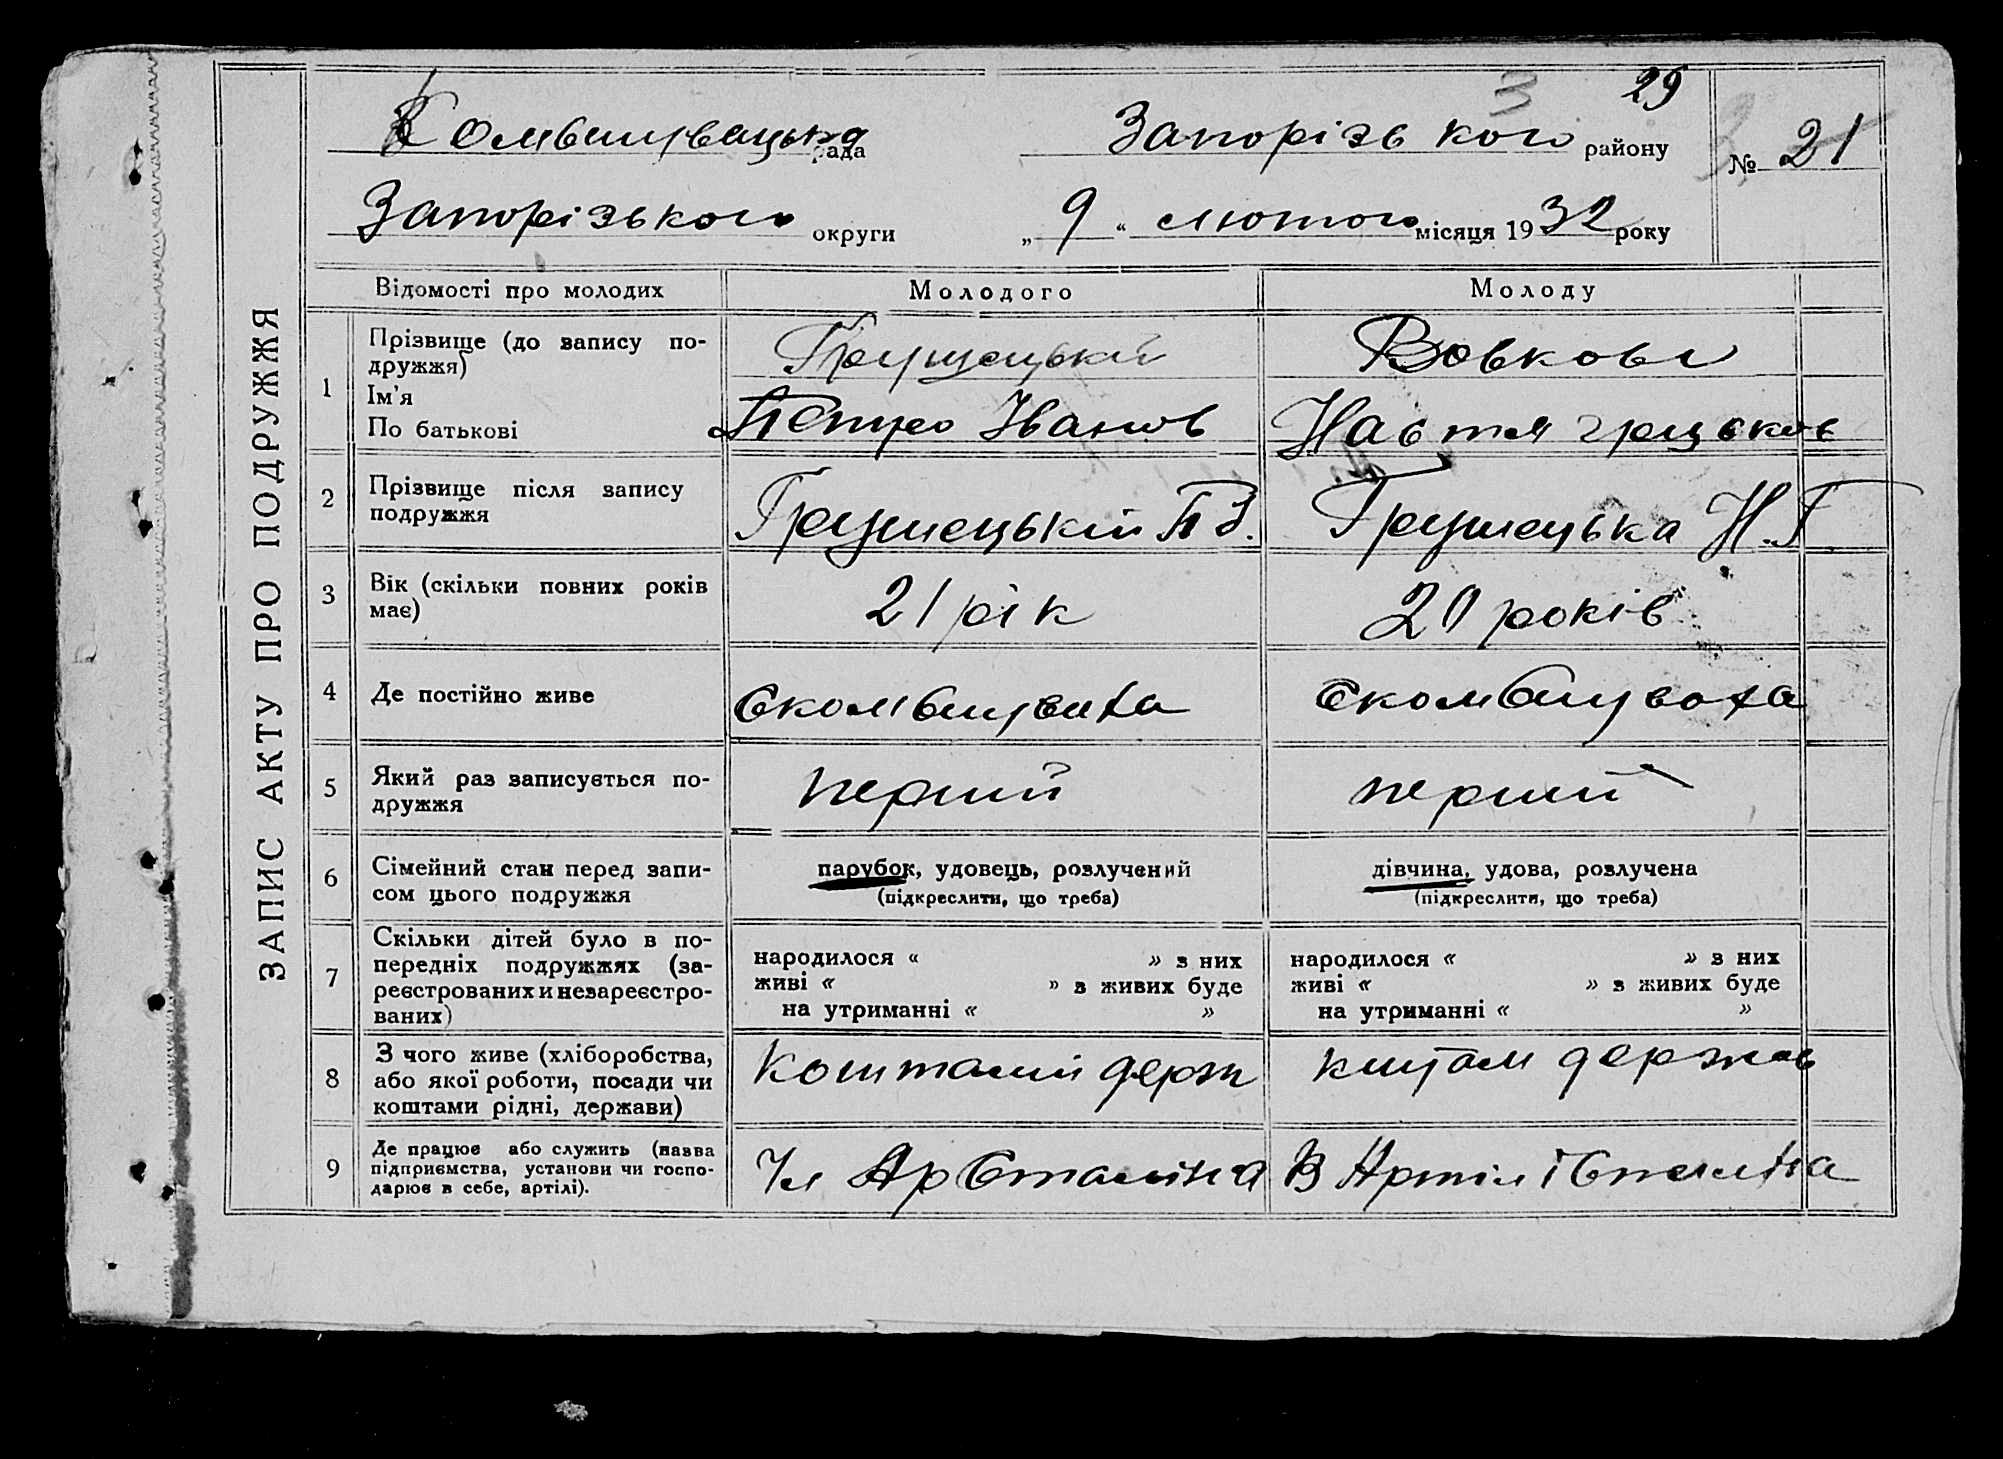 3 29
Комвишувацька рада Запорізького району № 21
Запорізького округи „ 9 “ лютого місяця 1932 року
ЗАПИС АКТУ ПРО ПОДРУЖЖЯ
Відомості про молодих Молодого Молоду
1 Прізвище (до запису по-
дружжя) Грушецькій Вовкова
Ім'я
По батькові Петро Іванов Настя Грицьков
2 Прізвище після запису
подружжя Грушецькій П І. Грушецька Н.Г
3 Вік (скільки повних років
має) 21 рік 20 років
4 Де постійно живе с комвишуваха с комвишуваха
5 Який раз записується по-
дружжя перший перший
6 Сімейний стан перед запи-
сом цього подружжя
парубок, удовець, розлучений дівчина, удова, розлучена
(підкреслити, що треба) (підкреслити, що треба)
7 Скільки дітей було в по-
передніх подружжях (за-
реєстрованих и незареєстро-
ваних)
народилося « » з них народилося « » з них
живі « » з живих буде живі « » з живих буде
на утриманні « » на утриманні « »
8 З чого живе (хліборобства,
або якої роботи, посади чи
коштами рідні, держави)
коштами держ держав
9 Де працює або служить (назва
підприємства, установи чи госпо-
дарює в себе, артілі).
Чл Ар Сталіна В Артілі Сталіна